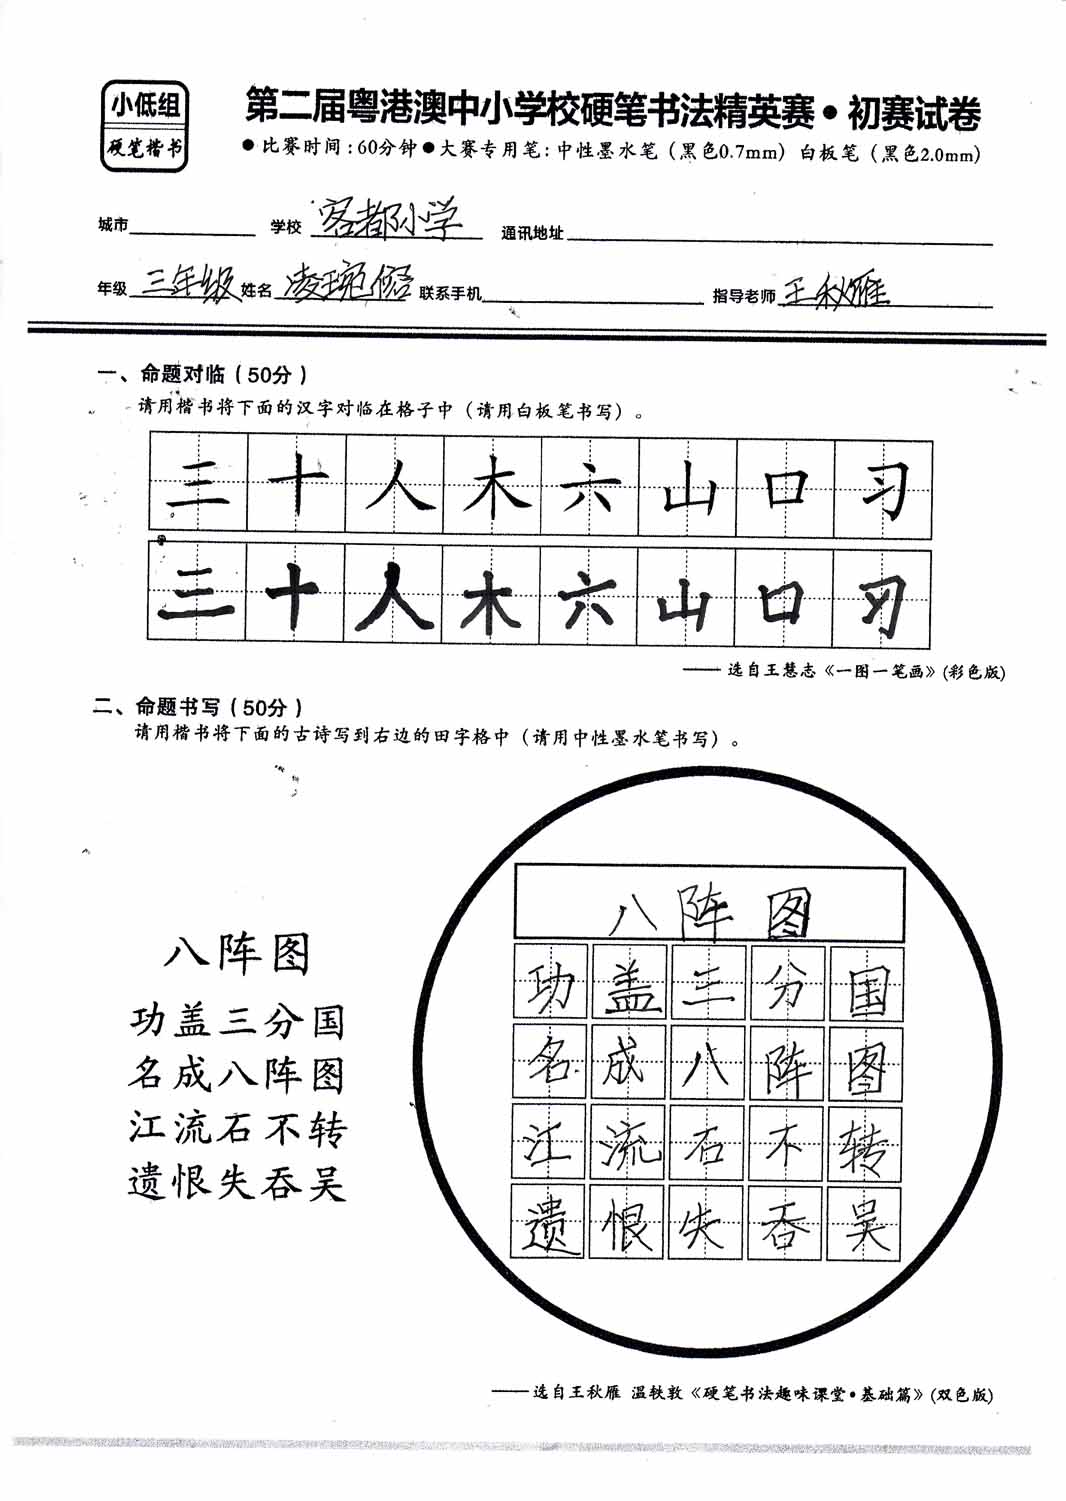 小低组
硬笔楷书
第二届粤港澳中小学校硬笔书法精英赛•初赛试卷
●比赛时间:60分钟●大赛专用笔:中性墨水笔(黑色0.7mm) 白板笔(黑色2.0mm)
城市 学校 客都小学 通讯地址
年级 三年级 姓名 凌琬 联系手机 指导老师 王秋雁
一、命题对临(50分)
请用楷书将下面的汉字对临在格子中(请用白板笔书写)。
三十人木六山口习
三十人木六山口习
——选自王慧志《一图一笔画》(彩色版)
二、命题书写(50分)
请用楷书将下面的古诗写到右边的田字格中(请用中性墨水笔书写)。
八阵图
功盖三分国
名成八阵图
江流石不转
遗恨失吞吴
八阵图
功盖三分国
名成八阵图
江流石不转
遗恨失吞吴
——选自王秋雁 温轶敦《硬笔书法趣味课堂·基础篇》(双色版)